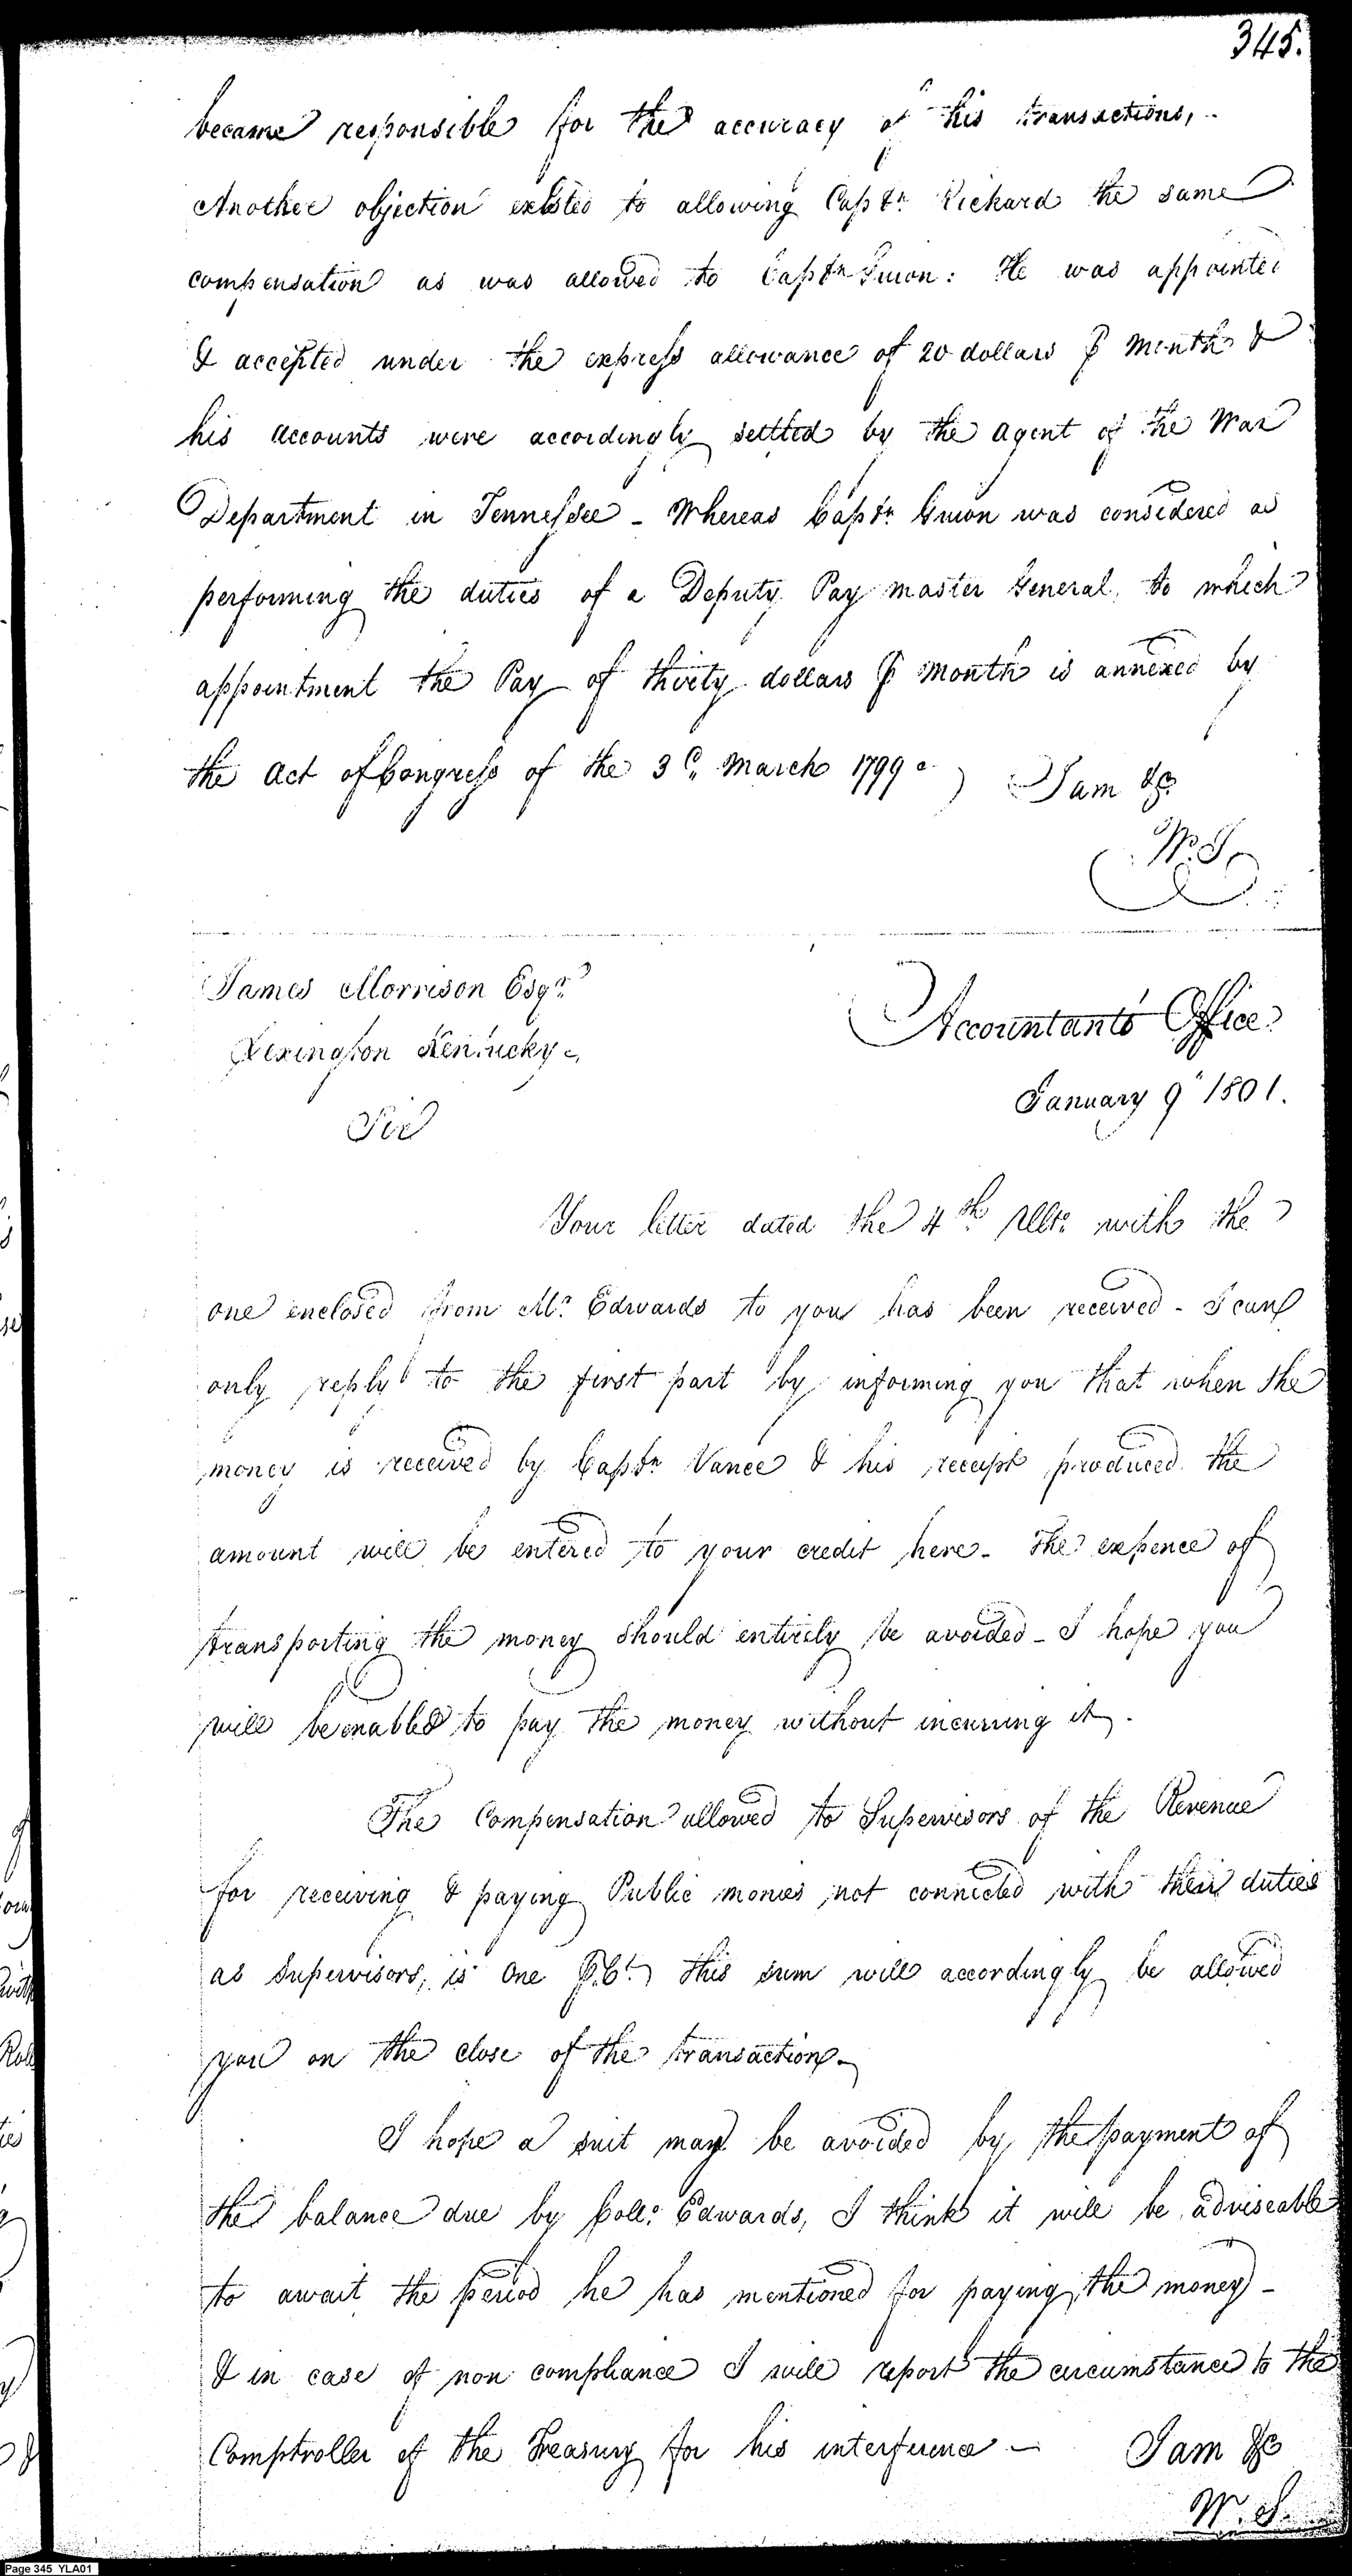 345.
became responsible for the accuracy of his transactions,
Another objection existed to allowing Captn. Rickard the same
compensation as was allowed to Captn Guion: He was appointed
& accepted under the express allowance of 20 dollars ⅌ Month &
his accounts were accordingly settled by the Agent of the War
Department in Tennessee - Whereas Captn Guion was considered as
performing the duties of a Deputy Pay master General, to which
appointment the Pay of thirty dollars ⅌ Month is annexed by
the Act of Congress of the 3d. March 1799 I am &c.
W. S.
James Morrison Esqr.
Lexington Kentucky
Accountants Office
January 9" 1801.
Sir
Your letter dated the 4th Ulto. with the
one enclosed from Mr. Edwards to you has been received - I can
only reply to the first part by informing you that when the
money is received by Captn Vance & his receipt produced the
amount will be entered to your credit here - The expence of
transporting the money should entirely be avoided - I hope you
will be enabled to pay the money without incurring it.
The Compensation allowed to Supervisors of the Revenue
for receiving & paying Public monies not connected with their duties
as Supervisors, is One ⅌ Ct. this sum will accordingly be allowed
you on the close of the transaction -
I hope a suit may be avoided by the payment of
the balance due by Coll. Edwards, I think it will be adviseable
to await the period he has mentioned for paying the money -
& in case of non compliance I will report the circumstance to the
Comptroller of the Treasury for his interference - I am &c
W. S.
Page 345 YLA01